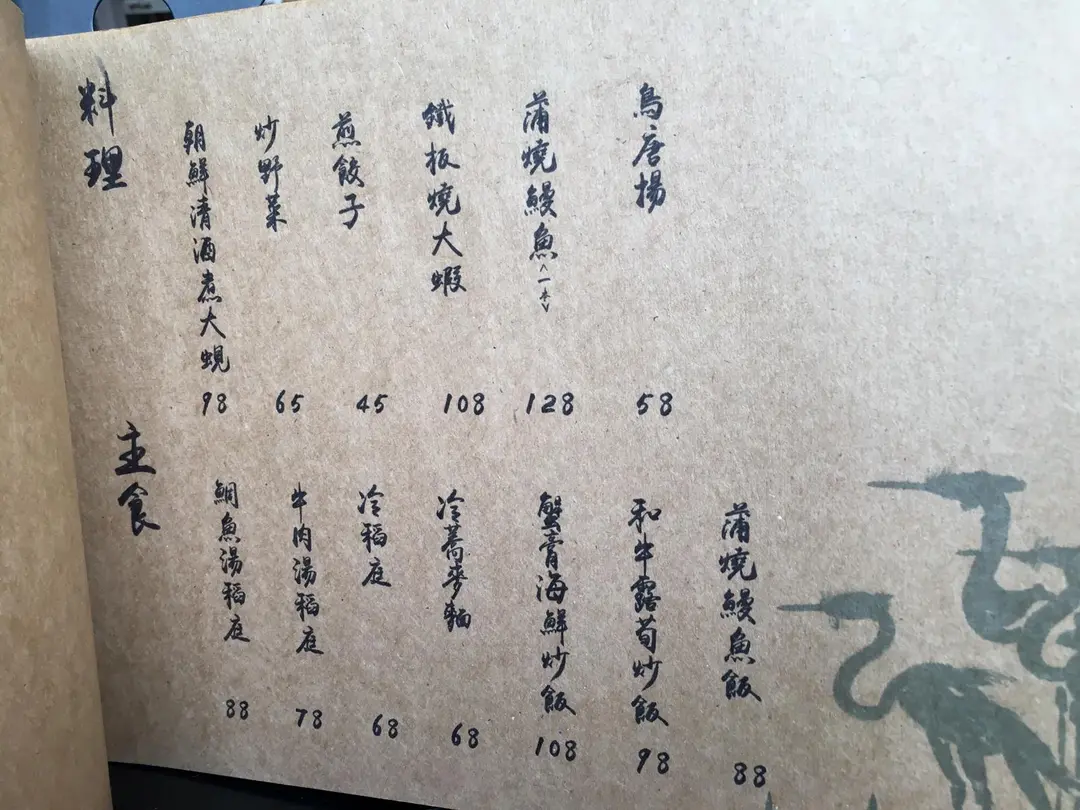 料理
朝鮮清酒煮大蜆
98
炒野菜
65
煎餃子
45
鐵板燒大蝦
108
蒲燒鰻魚<一本>
128
鳥唐揚
58
主食
鯛魚湯稻庭
88
牛肉湯稻庭
78
冷稻庭
68
冷蕎麥麵
68
蟹膏海鮮炒飯
108
和牛露荀炒飯
98
蒲燒鰻魚飯
88